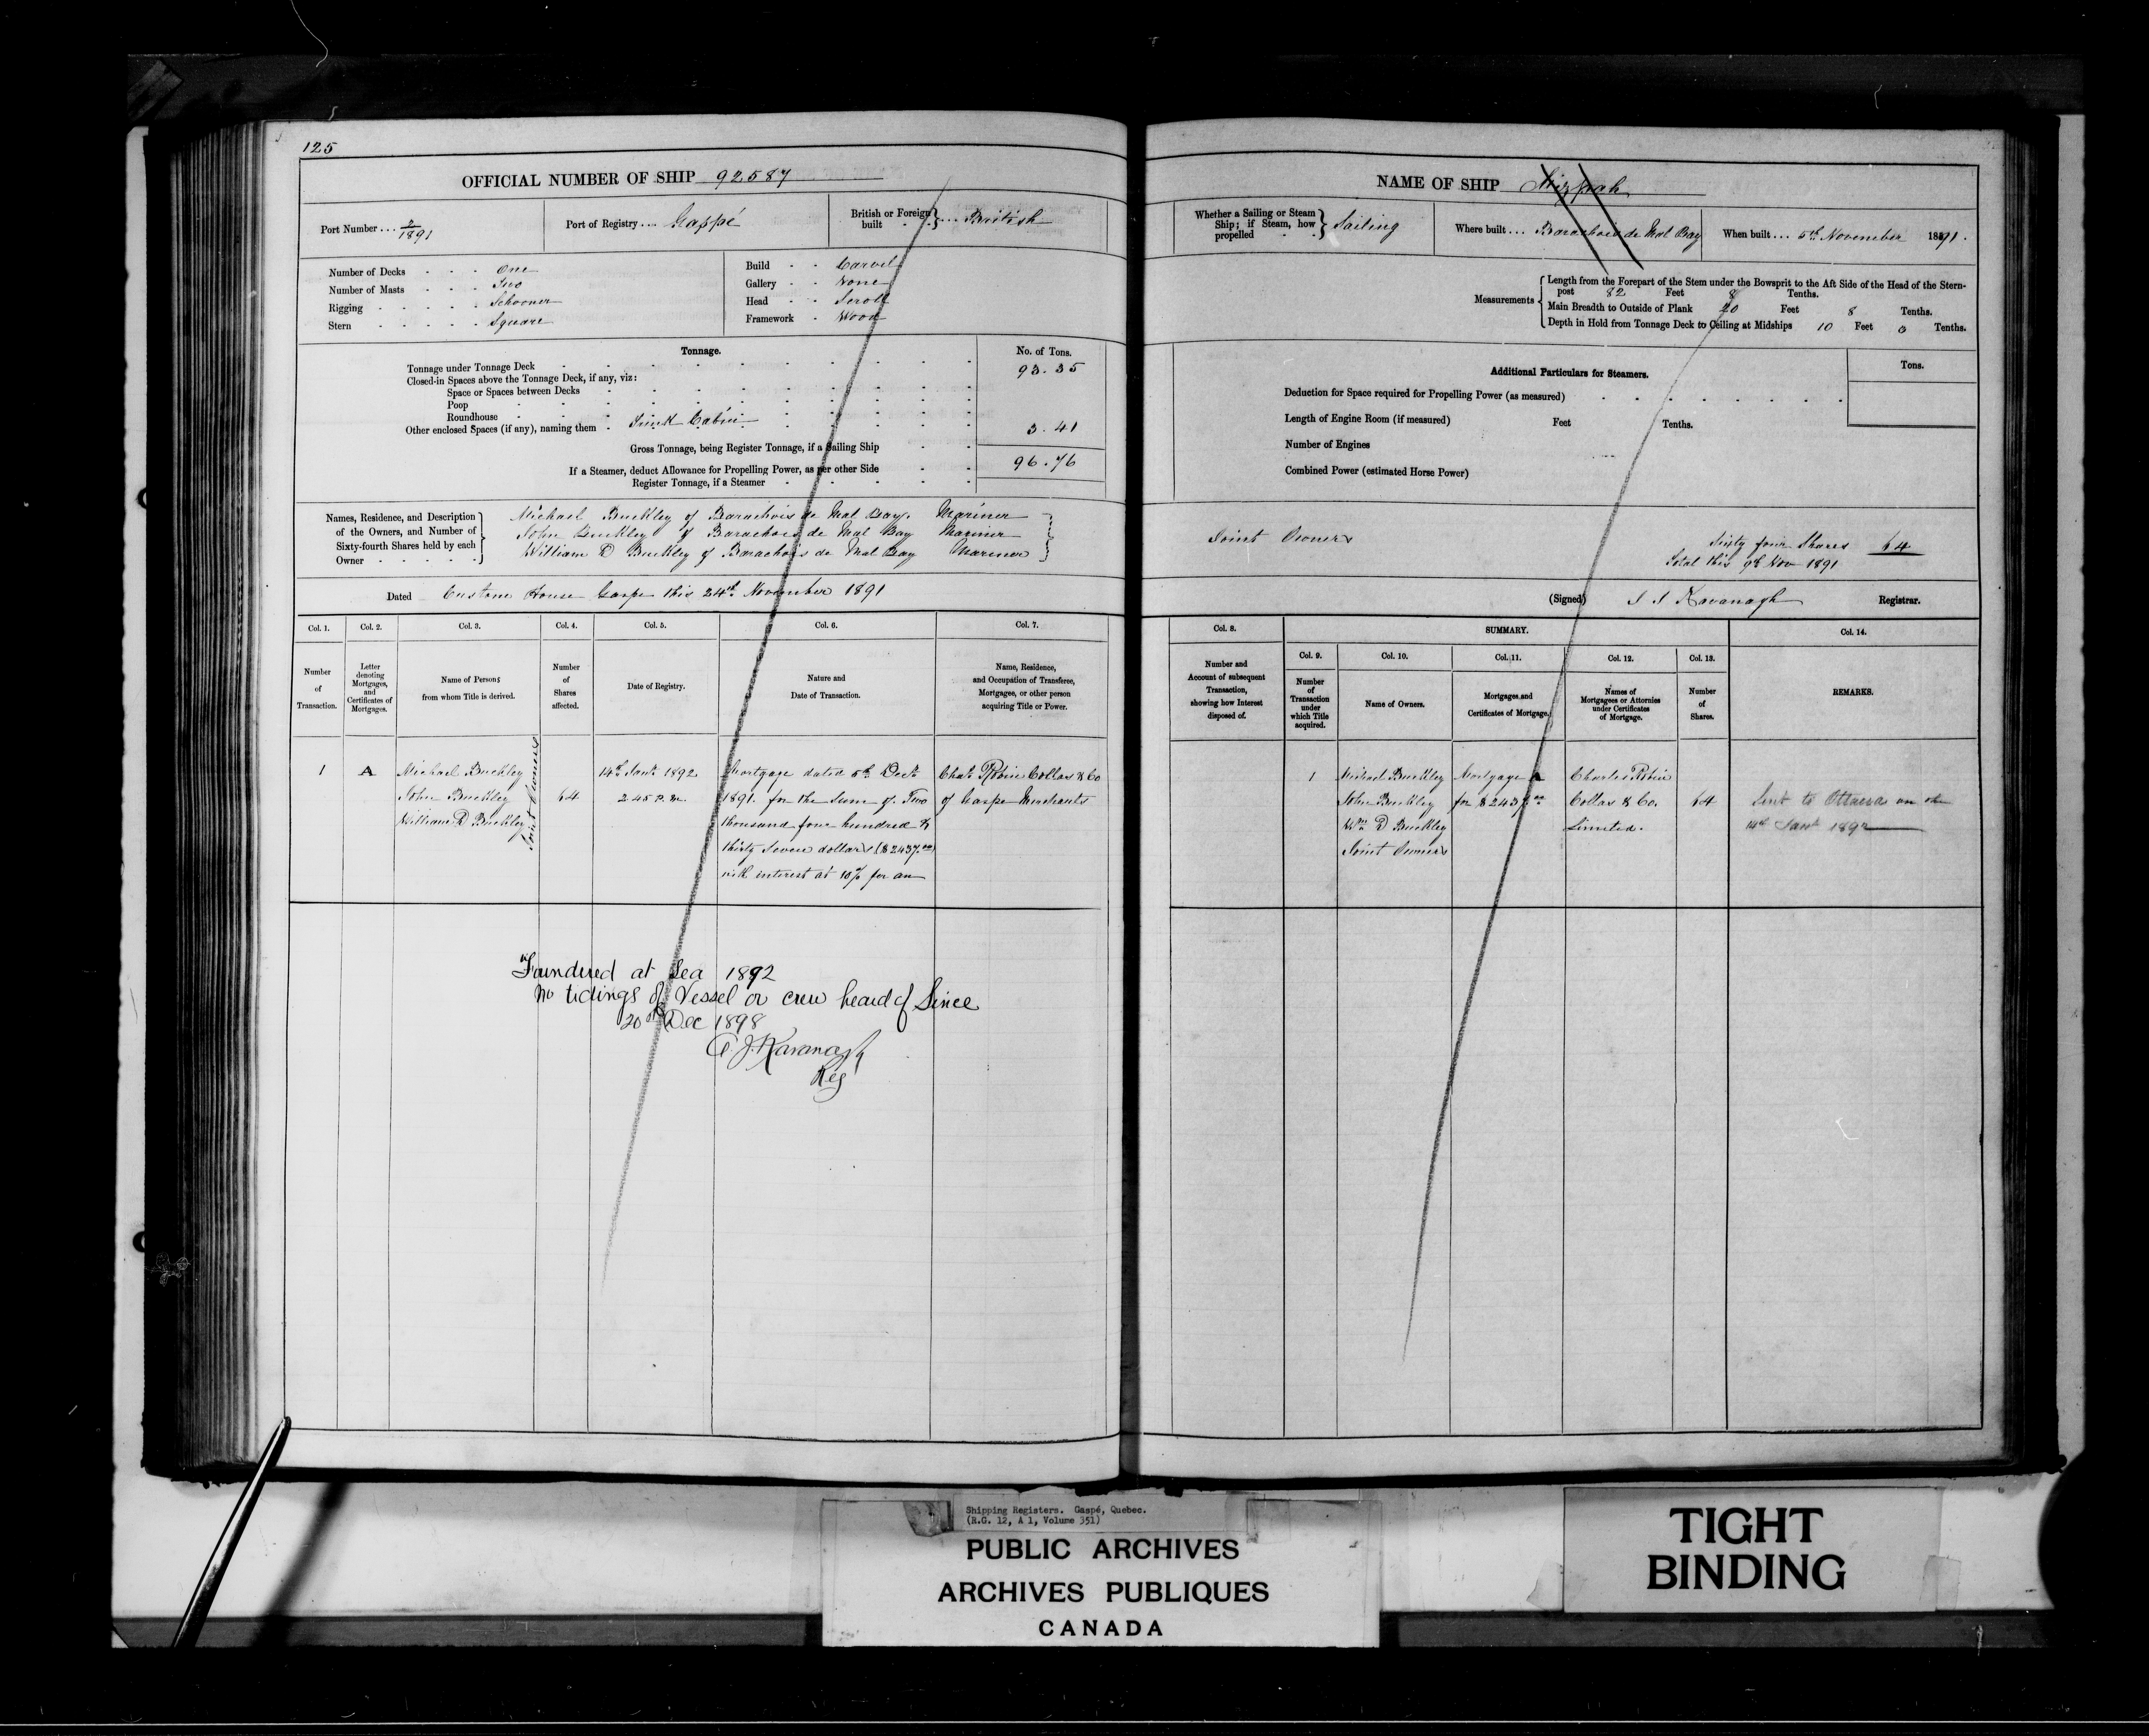 125
OFFICIAL NUMBER OF SHIP 92587
Port Number ... 2/1891
Port of Registry ... Gaspé
British or Foreign built } ... British
Number of Decks - - - One
Number of Masts - - - Two
Rigging - - - - Schooner
Stern - - - - - Square
Build - - Carvel
Gallery - - None
Head - - Scroll
Framework - Wood
Tonnage.
No. of Tons.
Tonnage under Tonnage Deck 93.35
Closed-in Spaces above the Tonnage Deck, if any, viz:
Space or Spaces between Decks
Poop
Roundhouse
Other enclosed Spaces (if any), naming them - Sunk Cabin 3.41
Gross Tonnage, being Register Tonnage, if a Sailing Ship 96.76
If a Steamer, deduct Allowance for Propelling Power, as per other Side
Register Tonnage, if a Steamer
Names, Residence, and Description of the Owners, and Number of Sixty-fourth Shares held by each Owner
Michael Buckley of Barachois de Mal Bay. Mariner
John Buckley of Barachois de Mal Bay Mariner
William D Buckley of Barachois de Mal Bay Mariner
Dated Custom House Gaspe this 24th November 1891
Col. 1. Col. 2. Col. 3. Col. 4. Col. 5. Col. 6. Col. 7.
Number of Transaction.
Letter denoting Mortgages, and Certificates of Mortgages.
Name of Persons from whom Title is derived.
Number of Shares affected.
Date of Registry.
Nature and Date of Transaction.
Name, Residence, and Occupation of Transferee, Mortgagee, or other person acquiring Title or Power.
1 A
Michael Buckley
John Buckley
William D Buckley
Joint Owners
64
14th Jany 1892
2.45 P.M.
Mortgage dated 5th Decr
1891. for the sum of Two
thousand four hundred &
thirty seven dollars ($2437.00)
with interest at 10% per an
Chas Robin Collas & Co
of Gaspe Merchants
Foundered at Sea 1892
No tidings of Vessel or crew heard of Since
20th Dec 1898
J. Kavanagh
Reg
NAME OF SHIP Mizpah
Whether a Sailing or Steam Ship; if Steam, how propelled } Sailing
Where built ... Barachois de Mal Bay
When built ... 5th November 1891.
Measurements
Length from the Forepart of the Stem under the Bowsprit to the Aft Side of the Head of the Stern-
post 82 Feet 8 Tenths.
Main Breadth to Outside of Plank 20 Feet 8 Tenths.
Depth in Hold from Tonnage Deck to Ceiling at Midships 10 Feet 0 Tenths.
Additional Particulars for Steamers.
Tons.
Deduction for Space required for Propelling Power (as measured)
Length of Engine Room (if measured) Feet Tenths.
Number of Engines
Combined Power (estimated Horse Power)
Joint Owners
Sixty four Shares 64
Total this 9th Nov 1891
(Signed) Kavanagh Registrar.
Col. 8. SUMMARY. Col. 14.
Col. 9. Col. 10. Col. 11. Col. 12. Col. 13.
Number and Account of subsequent Transaction, showing how Interest disposed of.
Number of Transaction under which Title acquired.
Name of Owners.
Mortgages and Certificates of Mortgage.
Names of Mortgagees or Attornies under Certificates of Mortgage.
Number of Shares.
REMARKS.
1
Michael Buckley
John Buckley
Wm D Buckley
Joint Owners
Mortgage A
for $2437.00
Charles Robin
Collas & Co.
Limited.
64
Sent to Ottawa on the
14th Jany 1892
Shipping Registers. Gaspé, Quebec.
(R.G. 12, A 1, Volume 351)
PUBLIC ARCHIVES
ARCHIVES PUBLIQUES
CANADA
TIGHT
BINDING